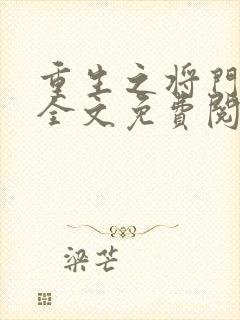 重生之将门
全文免費閱
梁芒